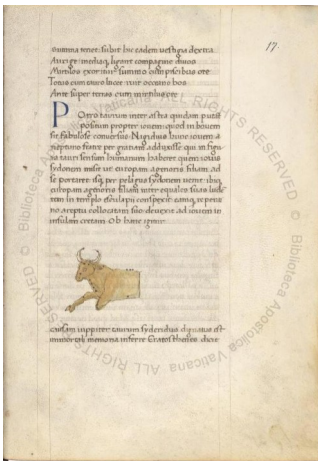 17.
summa tenet subit huc eadem vestigia dextra
Aurige mediaq; ligant compagine divos
Totus cum tauro lucet
Ante super terras cum
Porro taurum inter astra quidam putant
positum propter iovem quod in bovem
sit fabulose conversus. Nigidius hunc iovem a
neptuno fratre per gratiam adduxisse qui in figu
ra tauri sensum humanum haberet quem iovis
sydonem misit ut europam agenoris filiam ad
se portaret. isq; per pelagus sydonem venit. ibiq;
europam agenoris filiam inter equales suas lude
tem in templo esculapii conspexit eamq; repens
no areptu collocatam suo devexit ad iovem in
insulam cretam. Ob hanc igitur
causam iuppiter taurum syderibus dignatus est
immortali memoria inferre Eratosthenes dicit
Biblioteca Apostolica Vaticana ALL RIGHTS RESERVED ©